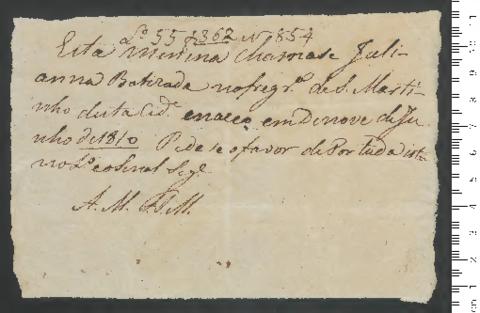 Lº 55 f 362 Nº 854
Esta menina chamase Juli-
anna Batizada na freg.ª de S. Marti-
nho desta Cid.ᵉ e naceo em De nove de Ju
nho de 1810 Pede se o favor de Por tuda ist
no Lº e o sinal Seg.ᵉ
A. M. F. M.